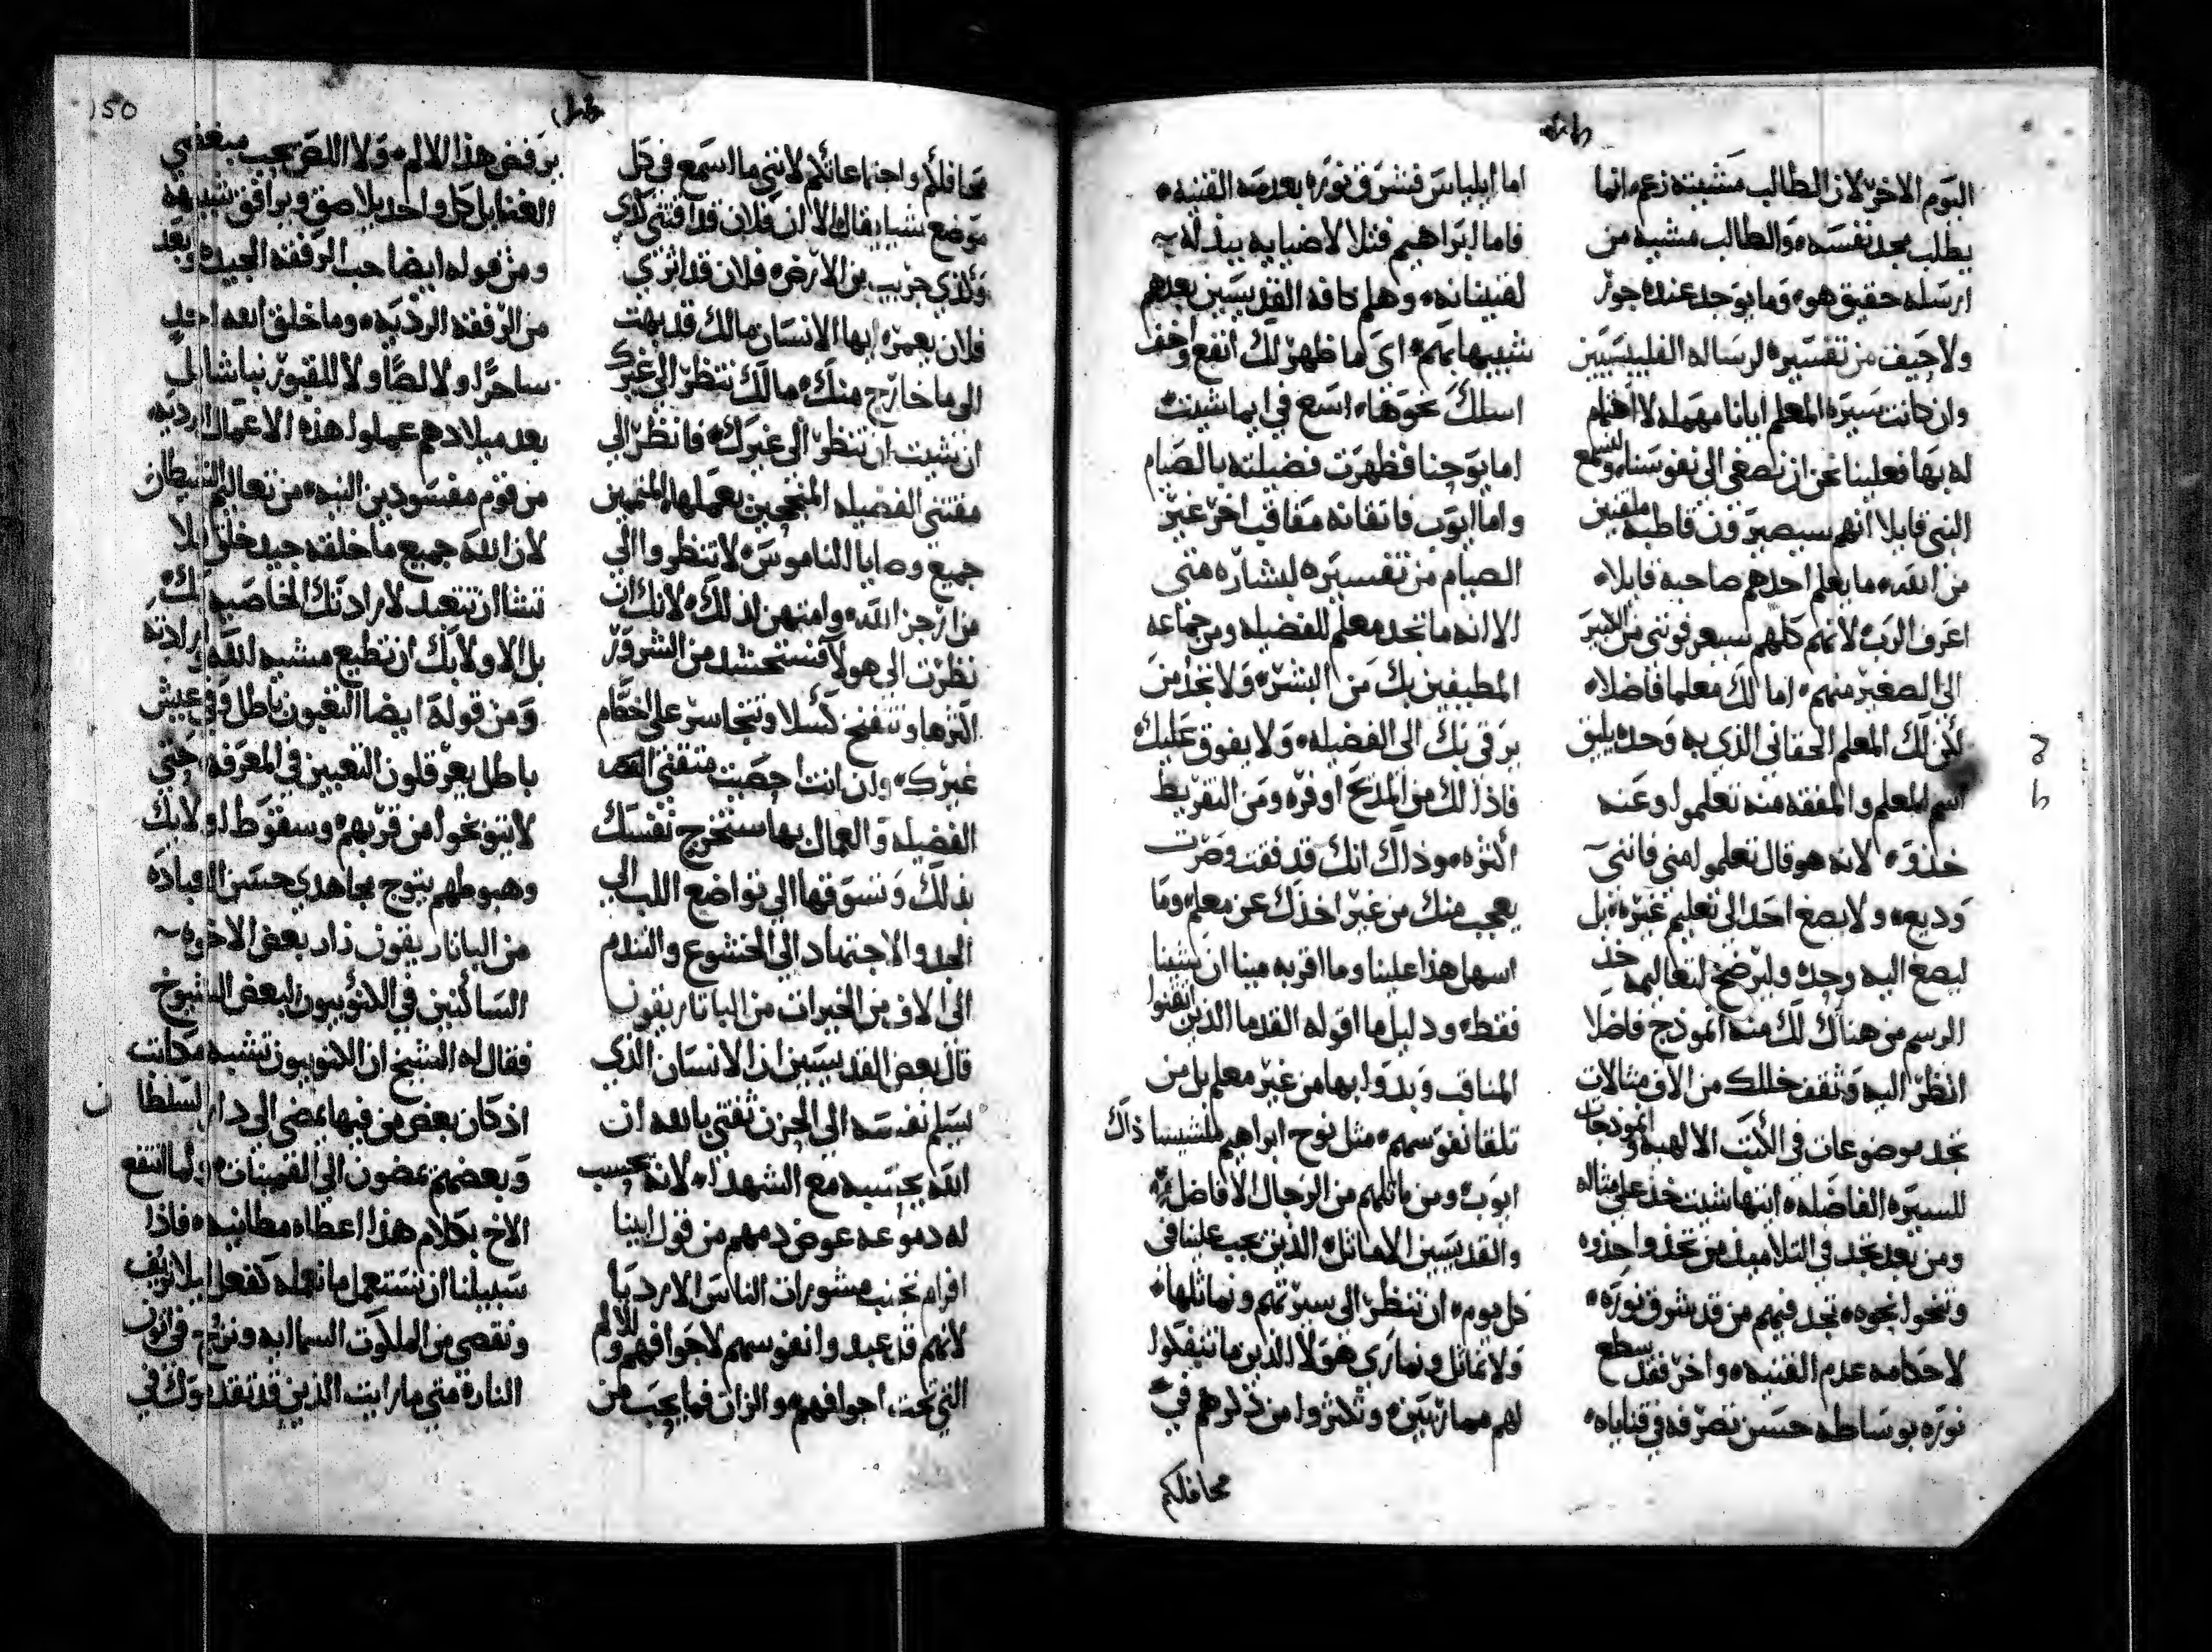 اليوم الاخر لان الطالب مشيته زعم انما
يطلب مجد نفسه والطالب مشيه من
ارسله حقيق هو وما يوجد عنده جور
ولاحيف من تفسيره لرساله الفليبسيين
وان كانت سيرة المعلم ايانا مهمله لا اهتمام
له بها فعلينا نحن ان نصغي الى نفوسنا ولنسمع
النبي قايلا انهم سيصيرون قاطبه ملقنين
من الله ما يعلم احدهم صاحبه قايلا
اعرف الرب لانهم كلهم سيعرفونني من الكبير
الى الصغير منهم اما لك معلما فاضلا
لكن لك المعلم الحقاني الذي به وحده يليق
اسم المعلم والمفقه منه تعلموا وعنه
خذوه لانه هو قال تعلموا مني فانني
وديع ولا يصغ احد الى تعليم غيره بل
ليصغ اليه وحده وليرضخ لتعاليمه خذ
الرسم من هناك لك منه انموذج فاضلا
انظر اليه وثقف خللك من الاف مثالات
تجد موضوعات في الكتب الالهيه وانموذجات
للسيره الفاضله ايتها شيت خذ على مثاله
ومن بعد تجد في التلاميذ من تجد واحذوه
وتنحوا نحوه تجد فيهم من قد شرق نوره
لاحكامه عدم القنيه واخر فقد سطع
نوره بوساطه حسن تصرفه في قناياه
اما ايلياس فشرق نوره بعدمه القنيه
فاما ابراهيم فتلالا ضيايه ببذله
لقنيناته وهلم كافه القديسين بعدهم
شبيها بهم اي ما ظهر لك انفع واخف
اسلك نحوها اسع في ايما شيت
اما يوحنا فظهرت فضيلته بالصيام
واما ايوب فاتقانه مقاقب اخر غير
الصيام من تفسيره لبشاره متى
الا انه ما تجد معلم للفضيله ومن جماعه
المطيفين بك من البشر ولا تجد من
يرقي بك الى الفضيله ولا يفوق عليك
فاذا لك من المدح اوفره ومن التقريظ
اكثره وذاك انك قد فقت وصرت
يعجب منك من غير اخذك عن معلم وما
اسهل هذا علينا وما اقربه مينا ان شينا
فقط ودليل ما اقوله القدما الذين اتقنوا
المناقب وبدوا بها من غير معلم بل من
تلقا نفوسهم مثل نوح ابراهيم ملشيساذاك
ايوب ومن ماثلهم من الرجال الافاضل
والقديسين الاماثل الذين يجب علينا في
كل يوم ان ننظر الى سيرتهم ونماثلها
ولا نماثل ونماري هولا الذين ما تتفكوا
لهم ممارتين وتكثروا من ذكرهم في
محافلكم
محافلكم واجتماعاتكم لانني ما اسمع في كل
موضع شيا يقال الا ان فلان قد اقتنى كذي
وكذي جريب من الارض فلان قد اثري
فلان يعمر ايها الانسان مالك قد بهت
الى ما خارج منك مالك تنظر الى غيرك
ان شيت ان تنظر الى غيرك فانظر الى
مقتني الفضيله المنجحين بعملها المتممين
جميع وصايا الناموس لا تنظروا الى
من ارجز الله وامتهن لذلك لانك ان
نظرت الى هولا فستحتشد من الشرور
اكثرها وتنفتح كسلا وتتجاسر على احكام
غيرك وان انت احصيت متقني
الفضيله والعمال بها ستخرج نفسك
بذلك وتسوقها الى تواضع اللب الى
الجد والاجتهاد الى الخشوع والتندم
الى الاف من الخيرات من الباتاريقون
قال بعض القديسين ان الانسان الذي
يسلم نفسه الى الحزن ثقتي بالله ان
الله يحتسبه مع الشهدا لانه يحتسب
له دموعه عوض دمهم من قول ابينا
افرام تجنب مشورات الناس الارديا
لانهم قد عبدوا نفوسهم لاجوافهم وللالم
التي تحت اجوافهم والزان فما يجب من
يرفض هذا الالم ولا اللص يحب مبغضي
الغنا بل كل واحد يلاصق ويرافق شبيهه
ومن قوله ايضا حب الرفقه الجيده وبعد
من الرفقه الرديه وما خلق الله احد
ساحرا ولا لصا ولا للقبور نباشا لكن
بعد ميلادهم عملوا هذه الاعمال الرديه
من قوم مفسودين النيه من تعاليم الشيطان
لان الله جميع ما خلقه جيد خلق ليلا
تشا ان تتعبد لارادتك الخاصيه لك
بل الاولا بك ان تطيع مشيه الله وارادته
ومن قوله ايضا التعبون باطل وفي عيش
باطل يعرقلون التعبين في المعرفه حتي
لا ينتوخوا من قربهم وسقوط اولايك
وهبوطهم يتوج مجاهدي حسن العباده
من الباتاريقون زار بعض الاخوه
الساكنين في الكنوبيون لبعض الشيوخ
فقال له الشيخ ان الكنوبيون تشبه مكانت
اذ كان بعض من فيها يمضى الى دار السلطان
وبعضهم يمضون الى القمينات ولما انتفع
الاخ بكلام هذا اعطاه مطانيه فاذا
سبيلنا ان نستعمل ما نعلمه كفعل ليلا نوقف
ونقصى من الملكوت السماييه ونزج في اتون
الناره متي ما رايت الذين قد تقدموك في